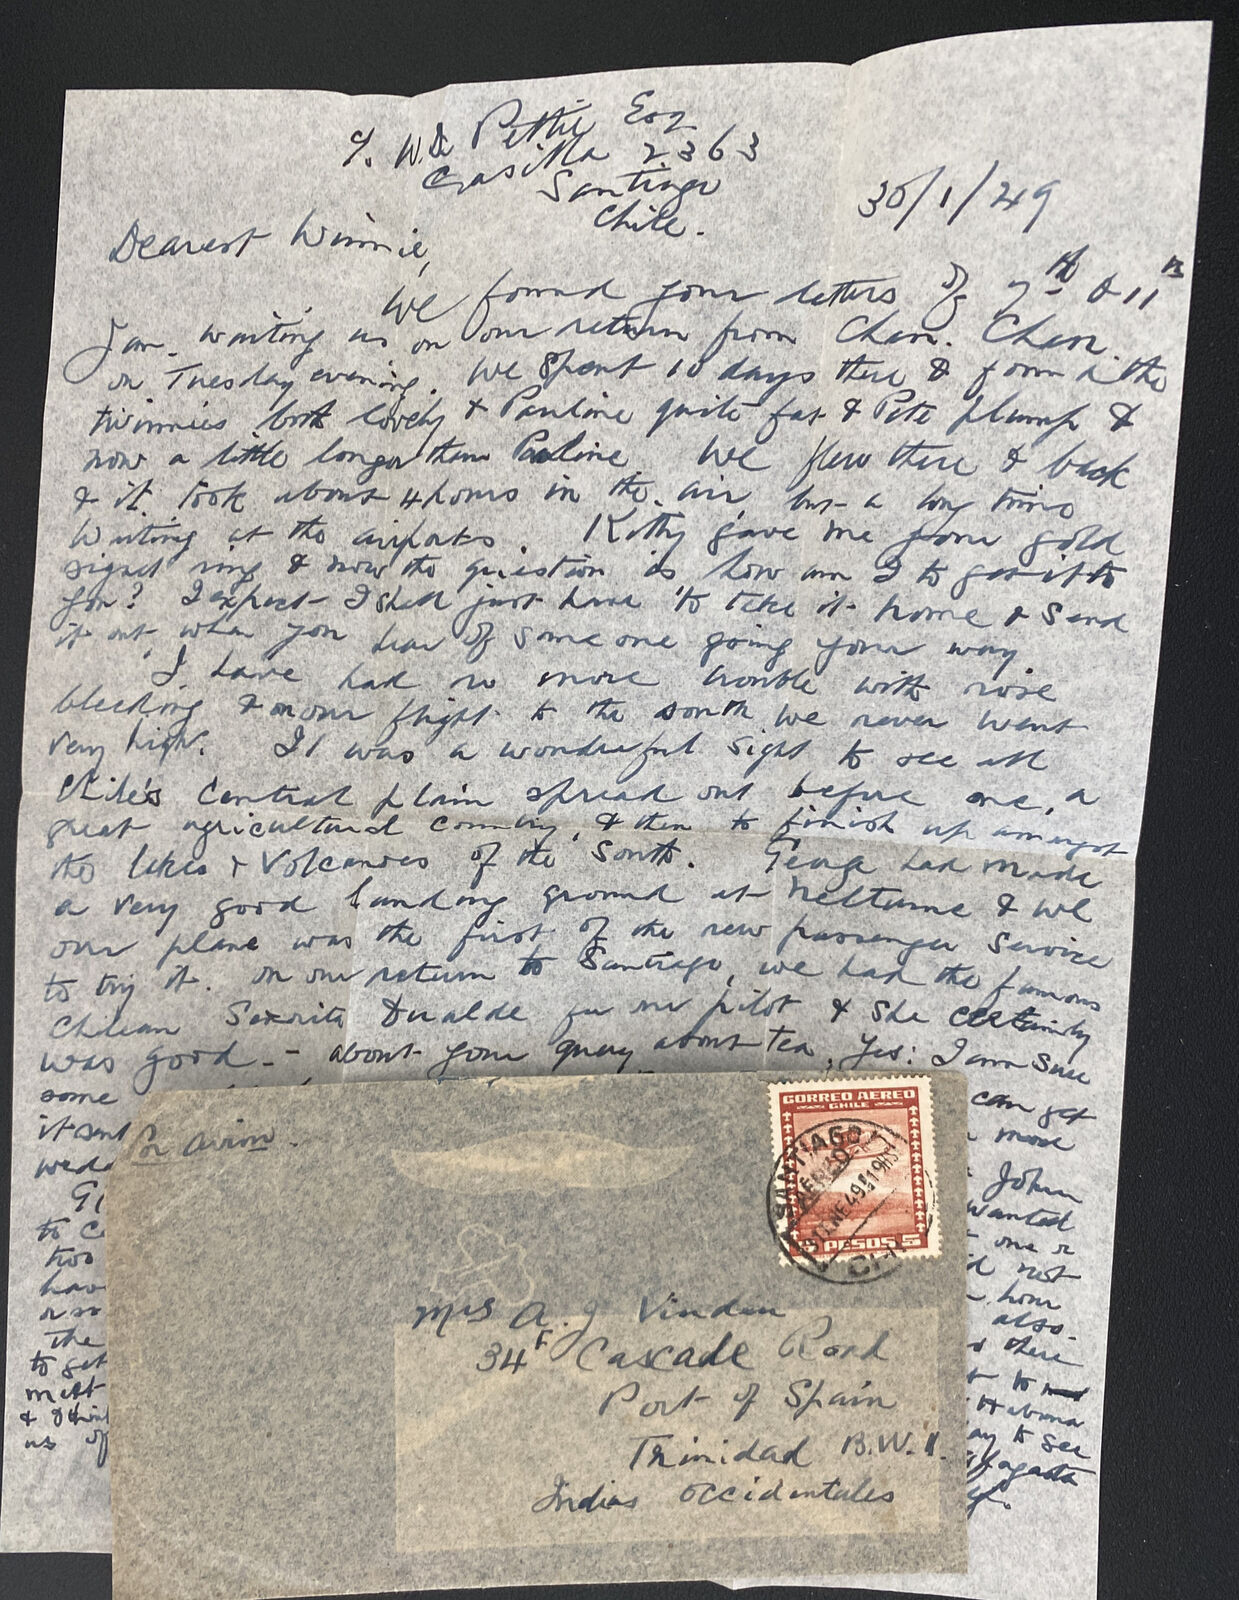 c/o W.D. Pettie Esq
Casilla 2363
Santiago
Chile.
30/1/49
Dearest Winnie,
We found your letters of 7th & 11th
Jan. waiting us on our return from Chan. Chan.
on Tuesday evening. We spent 10 days there & found the
twinnies both lovely & Pauline quite fat & Pete plump &
now a little longer than Pauline. We flew there & back
& it took about 4 hours in the air, but a long time
waiting at the airports. Kitty gave me your gold
signet ring & now the question is how am I to get it to
you? I expect I shall just have to take it home & send
it out when you hear of some one going your way.
I have had no more trouble with nose
bleeding & on our flight to the south we never went
very high. It was a wonderful sight to see all
Chile's Central plain spread out before one, a
great agricultural country, & then to finish up amongst
the lakes & Volcanoes of the South. George had made
a very good landing ground at Neltume & we
our plane was the first of the new passenger service
to try it. On our return to Santiago, we had the famous
Chilean Senorita Dualde for our pilot & she certainly
was good. - About your query about tea, yes: I am sure
some
can get
it sent
more
John
to
wanted
too
one or
not
or so
hour
the
also.
to get
there
to
&
to see
us of
Par avion.
CORREO AEREO
CHILE
PESOS 5
SANTIAGO
AEREO
49
CHILE
Mrs A. J Vinden
34F Cascade Road
Port of Spain
Trinidad B.W.I.
Indias Occidentales